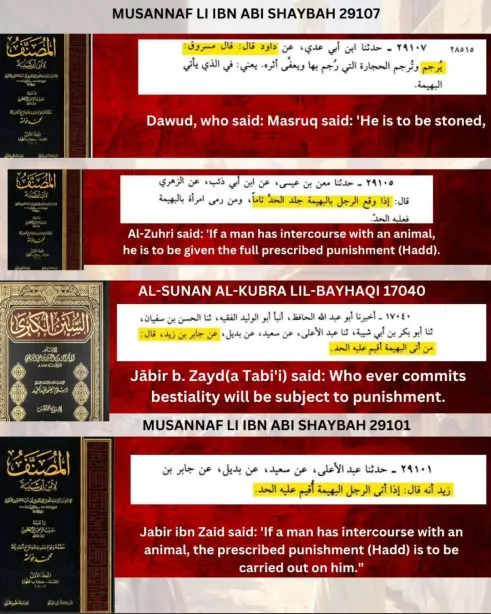 MUSANNAF LI IBN ABI SHAYBAH 29107
٢٩١٠٧ ـ حدثنا ابن أبي عدي، عن داود قال: قال مسروق: ٢٨٥١٥
يُرجم وتُرجم الحجارة التي رُجم بها ويعفَّى أثره. يعني: في الذي يأتي
البهيمة.
المصنف
Dawud, who said: Masruq said: 'He is to be stoned,
٢٩١٠٥ ـ حدثنا معن بن عيسى، عن ابن أبي ذئب، عن الزهري
قال: إذا وقع الرجل بالبهيمة جلد الحدَّ تاماً، ومن رمى امرأة بالبهيمة
فعليه الحدّ.
المصنف
Al-Zuhri said: 'If a man has intercourse with an animal,
he is to be given the full prescribed punishment (Hadd).
AL-SUNAN AL-KUBRA LIL-BAYHAQI 17040
١٧٠٤٠ ـ أخبرنا أبو عبد الله الحافظ، أنبأ أبو الوليد الفقيه، ثنا الحسن بن سفيان،
ثنا أبو بكر بن أبي شيبة، ثنا عبد الأعلى، عن سعيد، عن بديل، عن جابر بن زيد، قال:
من أتى البهيمة أقيم عليه الحد.
السنن الكبرى
Jābir b. Zayd(a Tabi'i) said: Who ever commits
bestiality will be subject to punishment.
MUSANNAF LI IBN ABI SHAYBAH 29101
٢٩١٠١ ـ حدثنا عبد الأعلى، عن سعيد، عن بديل، عن جابر بن
زيد أنه قال: إذا أتى الرجل البهيمة أُقيم عليه الحد.
المصنف
Jabir ibn Zaid said: 'If a man has intercourse with an
animal, the prescribed punishment (Hadd) is to be
carried out on him."